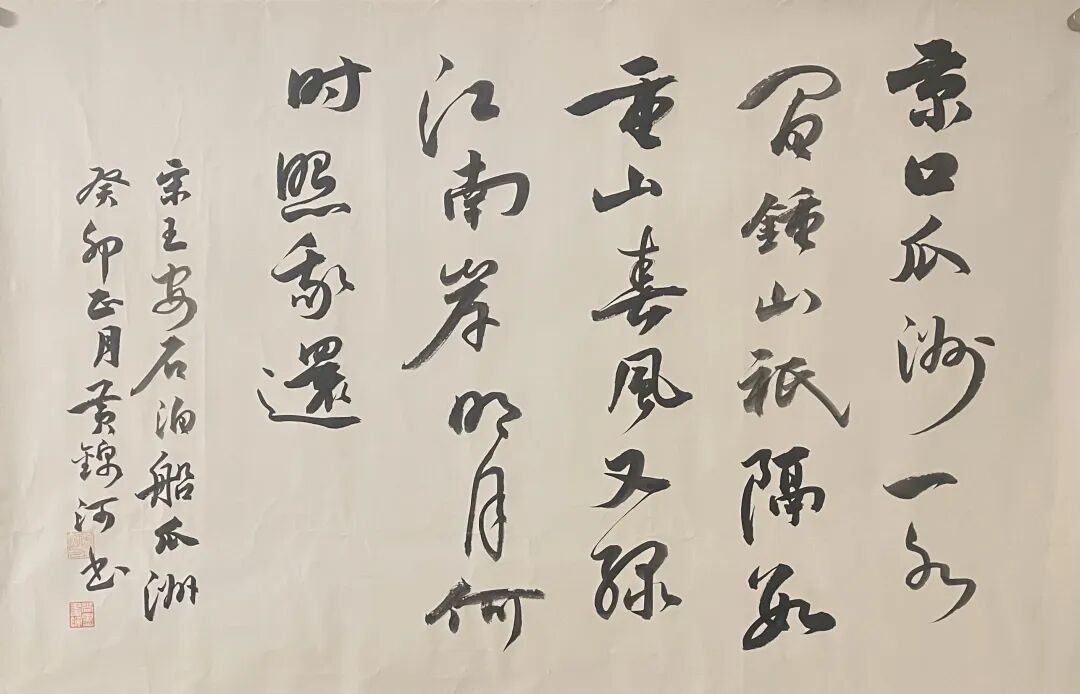 京口瓜洲一水
间鍾山祇隔数
重山春风又绿
江南岸明月何
时照我還
宋王安石泊船瓜洲
癸卯正月黄锦河书